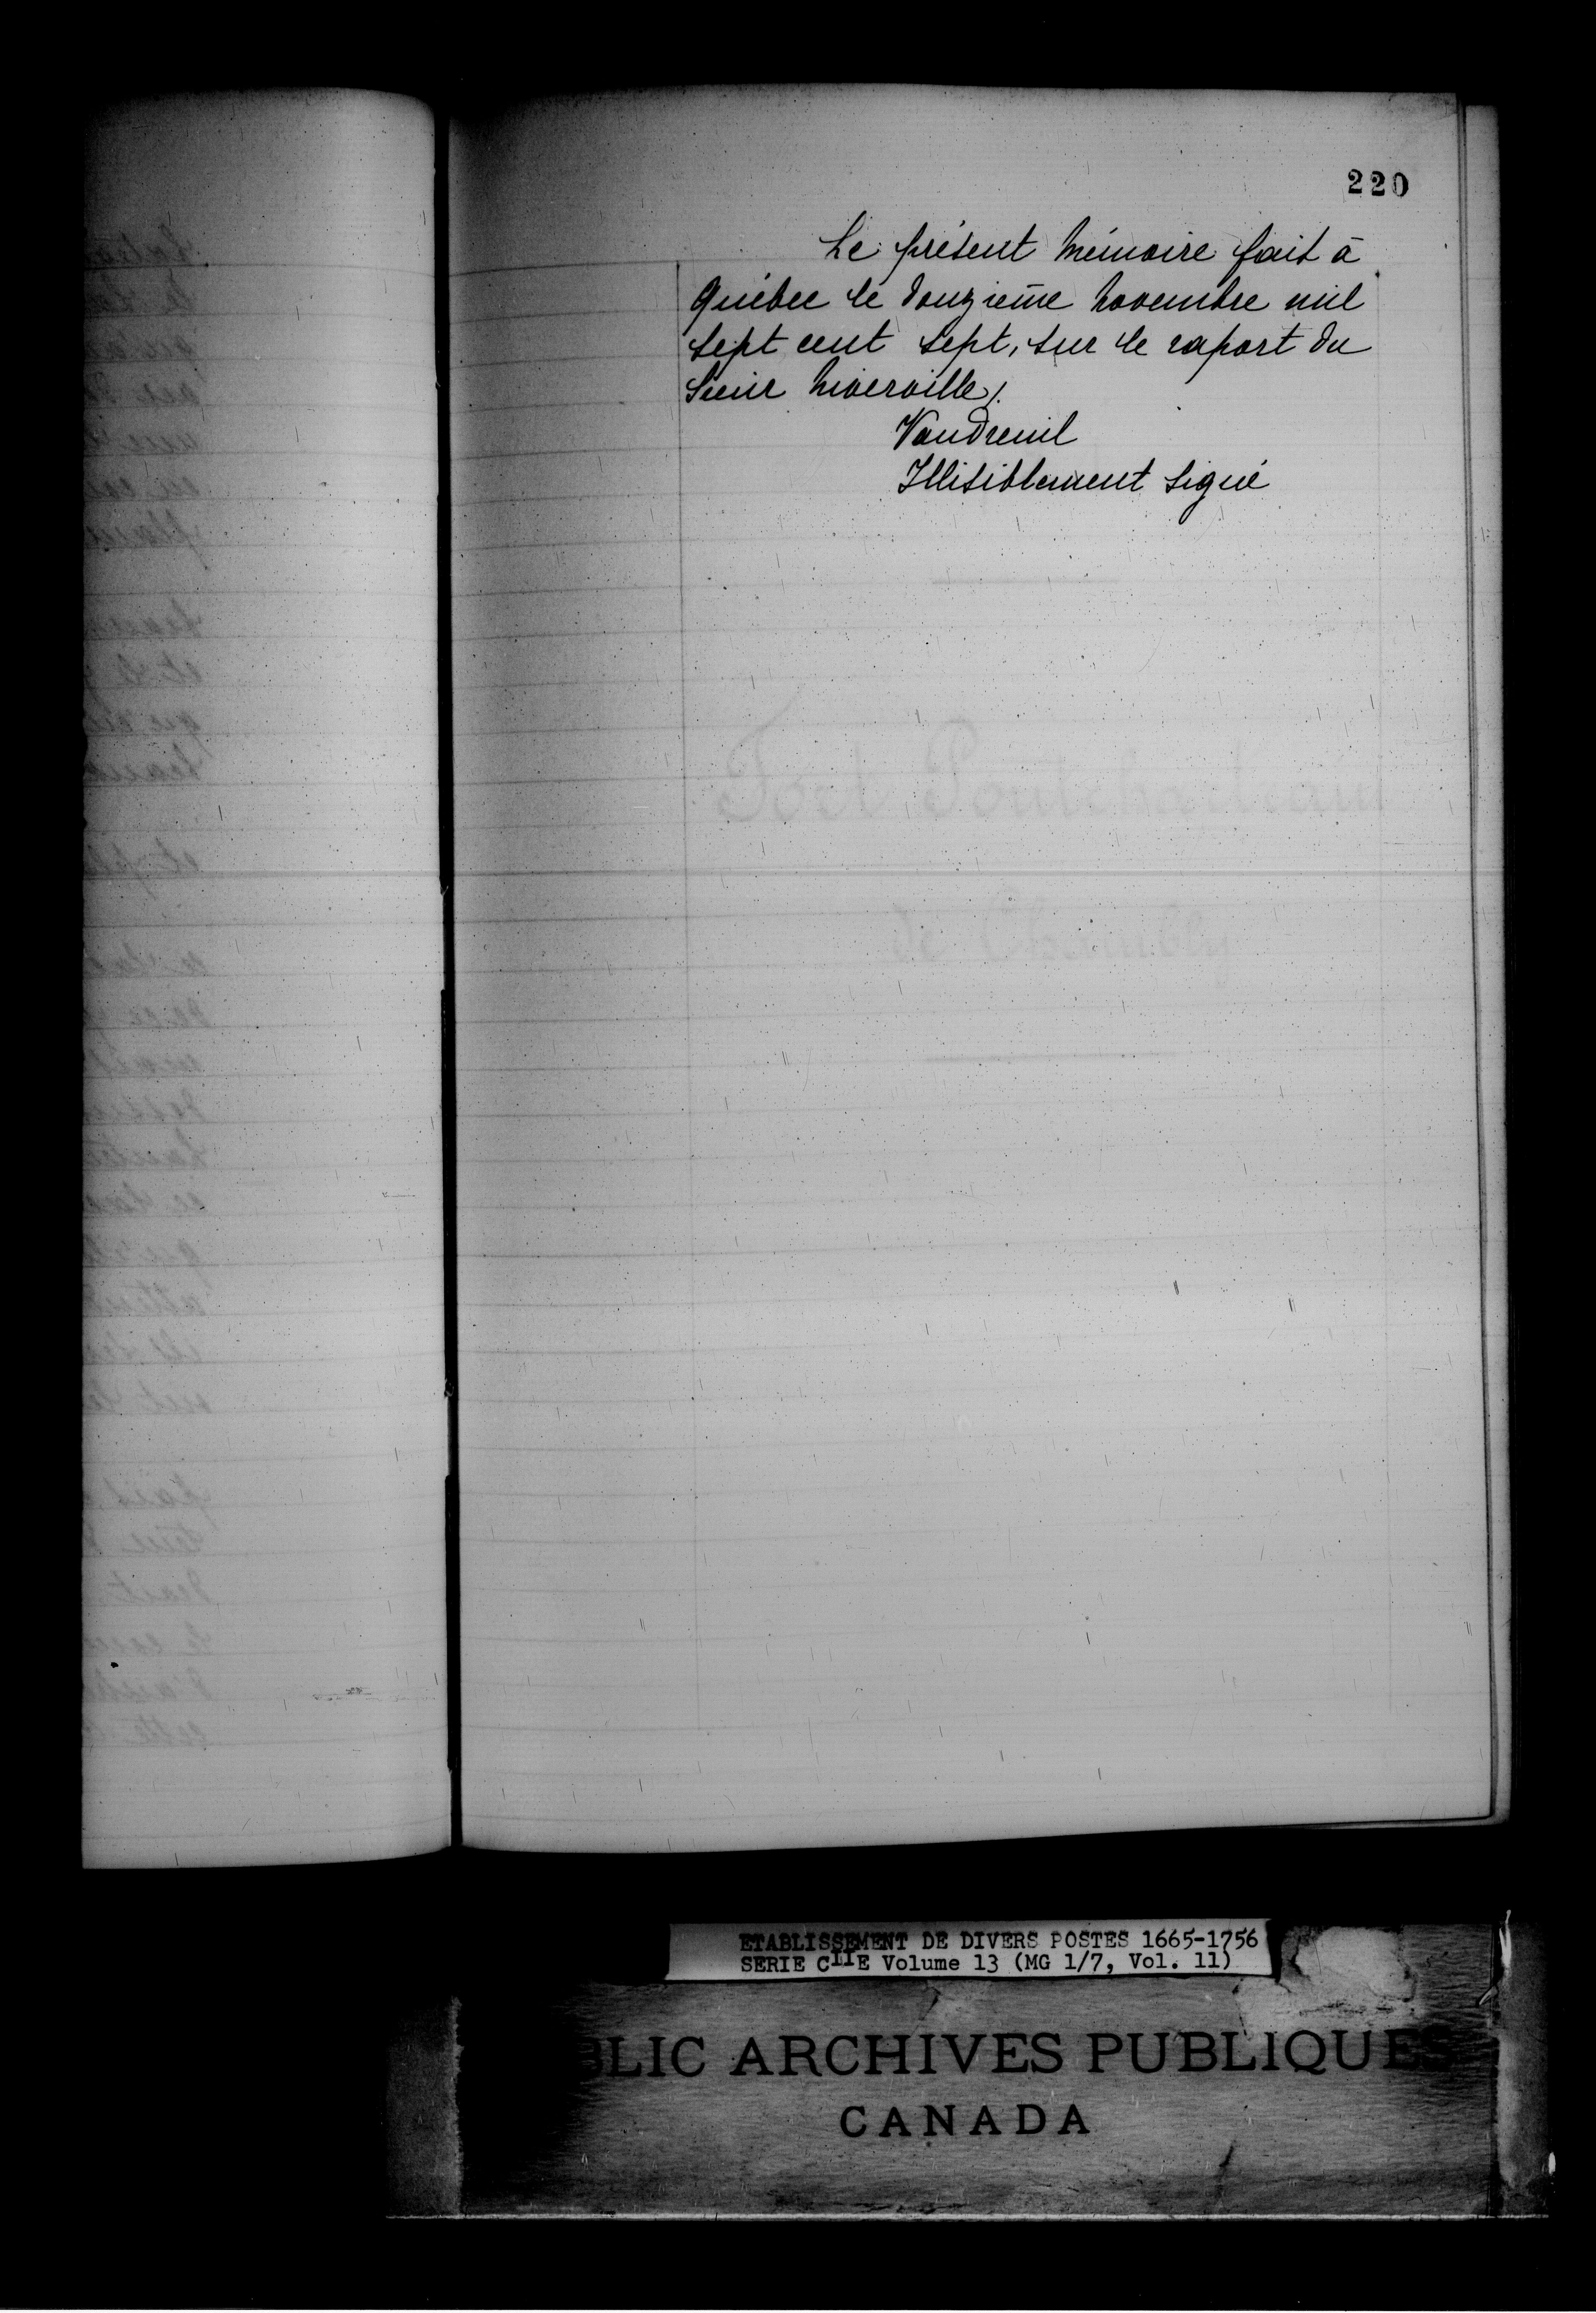 220
Le présent mémoire fait à
Québec le douzième novembre mil
sept cent sept, sur le raport du
Sieur Niverville /.
Vaudreuil
Illisiblement signé
Fort Pontchartrain
de Chambly
ETABLISSEMENT DE DIVERS POSTES 1665-1756
SERIE CIIE Volume 13 (MG 1/7, Vol. 11)
BLIC ARCHIVES PUBLIQUES
CANADA